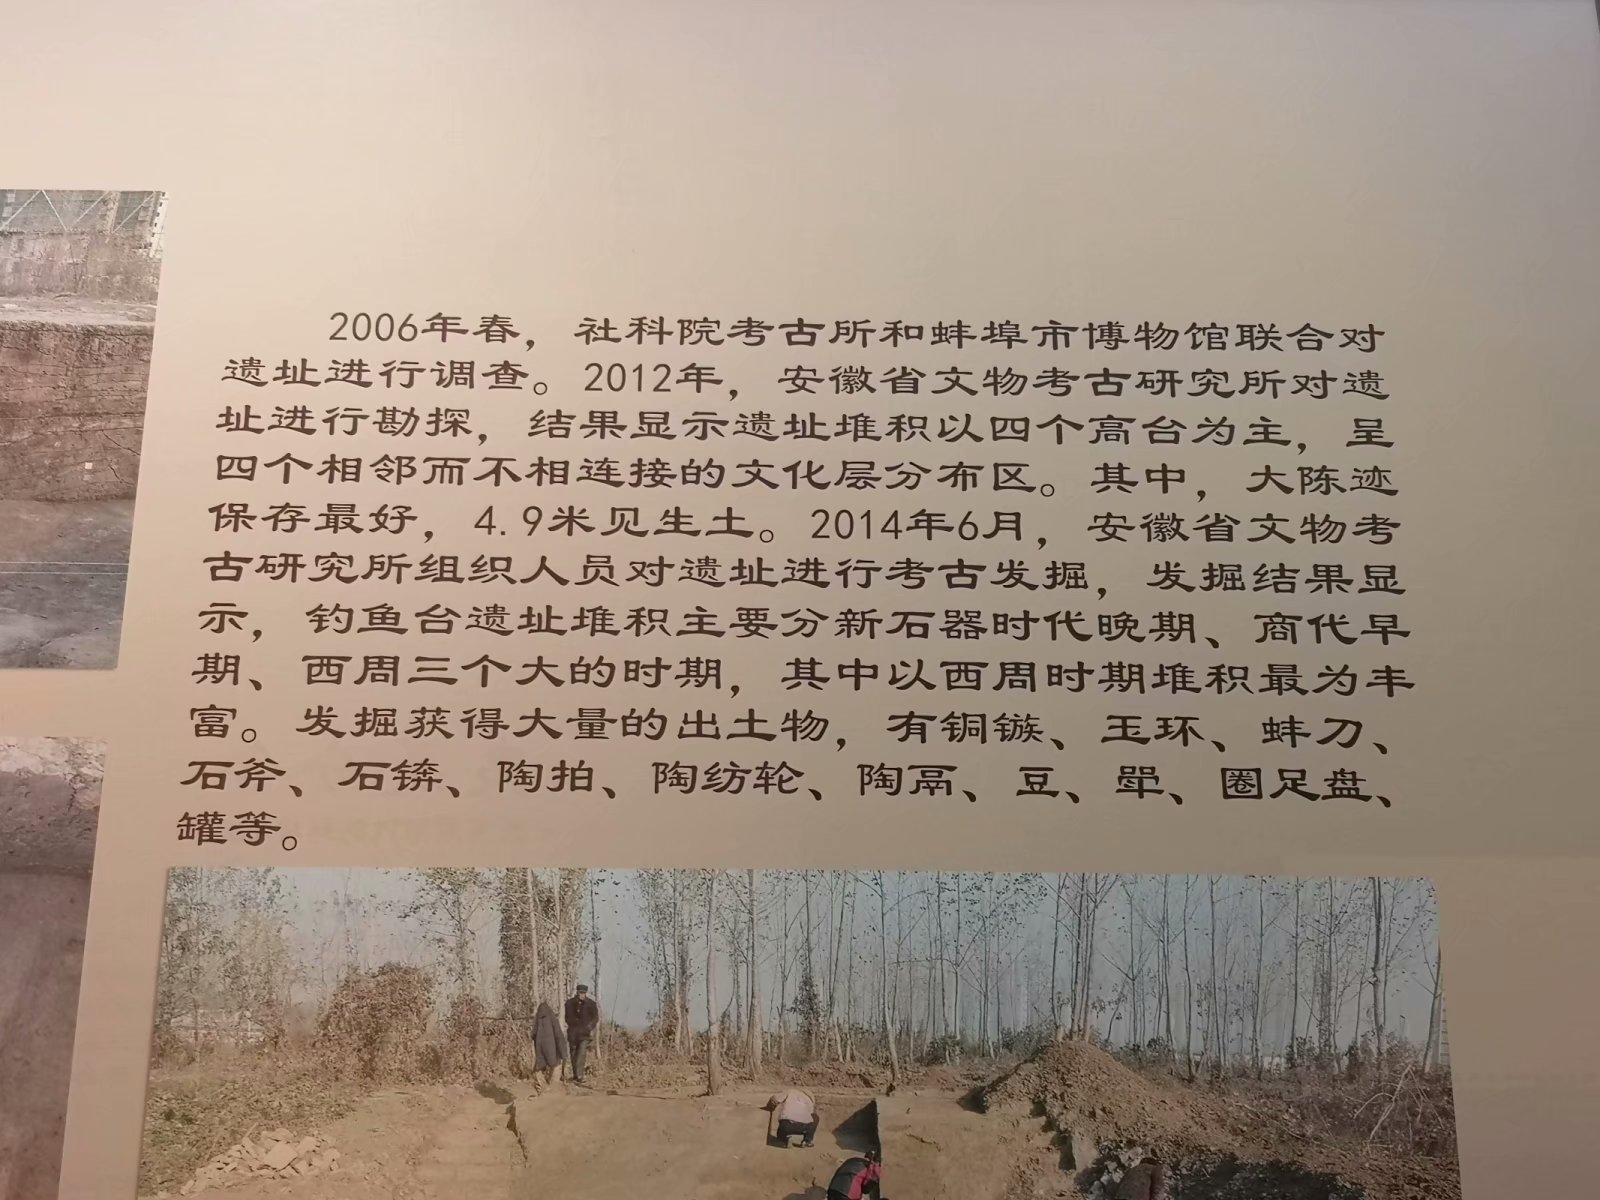 2006年春，社科院考古所和蚌埠市博物馆联合对
遗址进行调查。2012年，安徽省文物考古研究所对遗
址进行勘探，结果显示遗址堆积以四个高台为主，呈
四个相邻而不相连接的文化层分布区。其中，大陈迹
保存最好，4.9米见生土。2014年6月，安徽省文物考
古研究所组织人员对遗址进行考古发掘，发掘结果显
示，钓鱼台遗址堆积主要分新石器时代晚期、商代早
期、西周三个大的时期，其中以西周时期堆积最为丰
富。发掘获得大量的出土物，有铜镞、玉环、蚌刀、
石斧、石锛、陶拍、陶纺轮、陶鬲、豆、斝、圈足盘、
罐等。